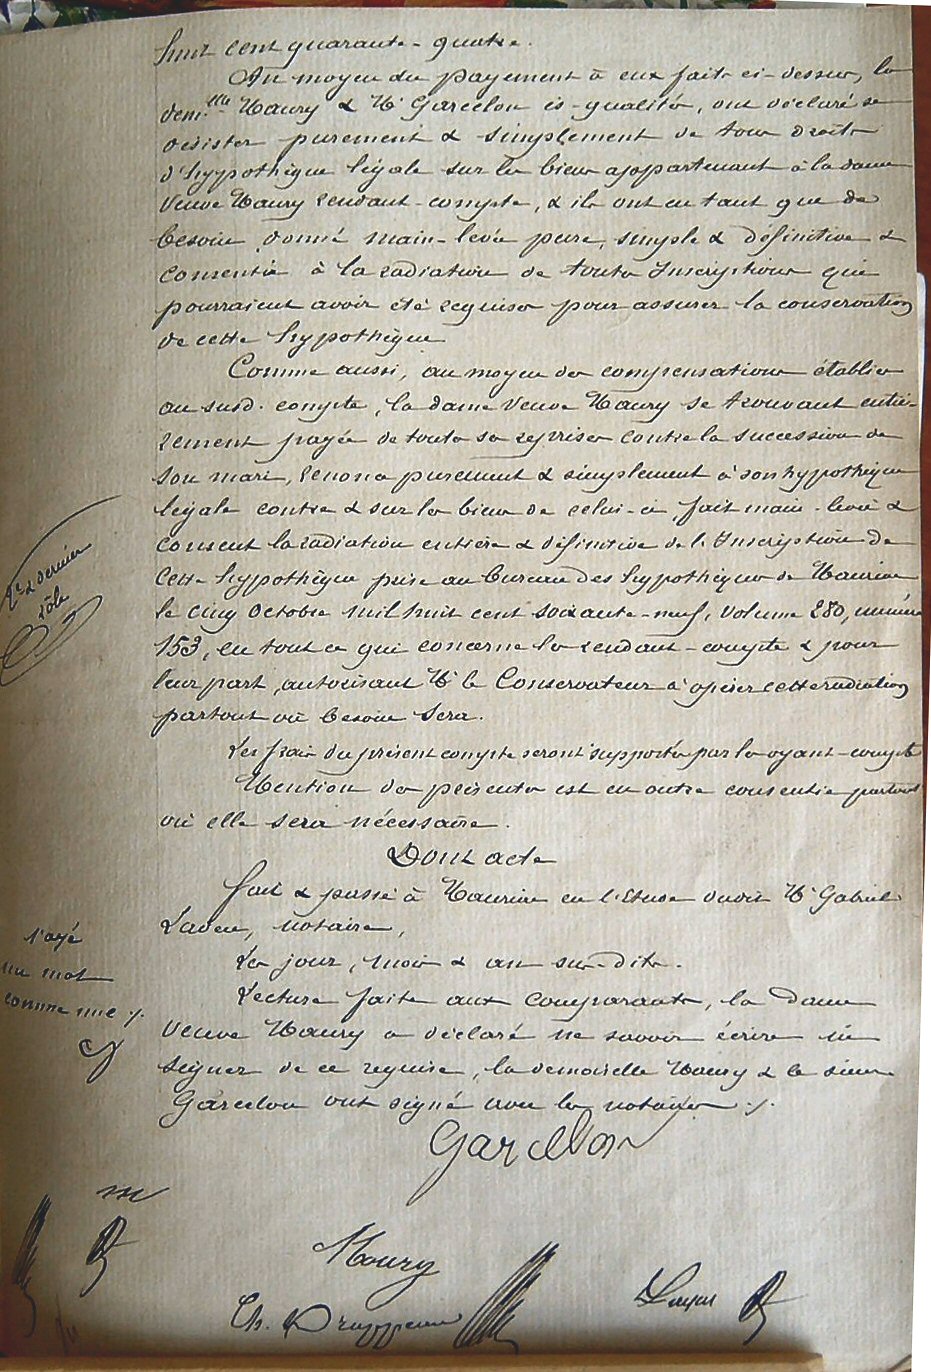 huit cent quarante-quatre.
Au moyen du payement à eux faits ci-dessus, la
dem.lle Maury & Mr Garcelon ès-qualité, ont déclaré se
désister purement & simplement de tous droits
d'hypothèque légale sur les biens appartenant à la dame
Veuve Maury rendant-compte, & ils ont en tant que de
besoin donné main-levée pure, simple & définitive &
consentie à la radiation de toutes Inscriptions qui
pourraient avoir été requises pour assurer la conservation
de cette hypothèque
Comme aussi, au moyen des compensations établies
au susd. compte, la dame veuve Maury se trouvant entiè-
rement payée de toutes ses reprises contre la succession de
son mari, renonce purement & simplement à son hypothèque
légale contre & sur les biens de celui-ci, fait main-levée &
consent la radiation entière & définitive de l'Inscription de
cette hypothèque prise au bureau des hypothèques de
le cinq octobre mil huit cent soixante-neuf, volume 280, numéro
153, en tout ce qui concerne les rendant-compte & pour
leur part, autorisant Mr le Conservateur à opérer cette radiation
partout où besoin sera.
Les frais du présent compte seront supportés par les oyant-compte
Mention des présentes est en outre consentie partout
où elle sera nécessaire.
Dont acte
fait & passé à en l'Etude dudit Me Gabriel
notaire,
Les jour, mois & an sus-dits.
Lecture faite aux comparants, la dame
veuve Maury a déclaré ne savoir écrire ni
signer de ce requise, la demoiselle Maury & le sieur
Garcelon ont signé avec les notaires ./.
& dernier
rôle
rayé
un mot
comme nul ./.
Garcelon
Maury
Ch.